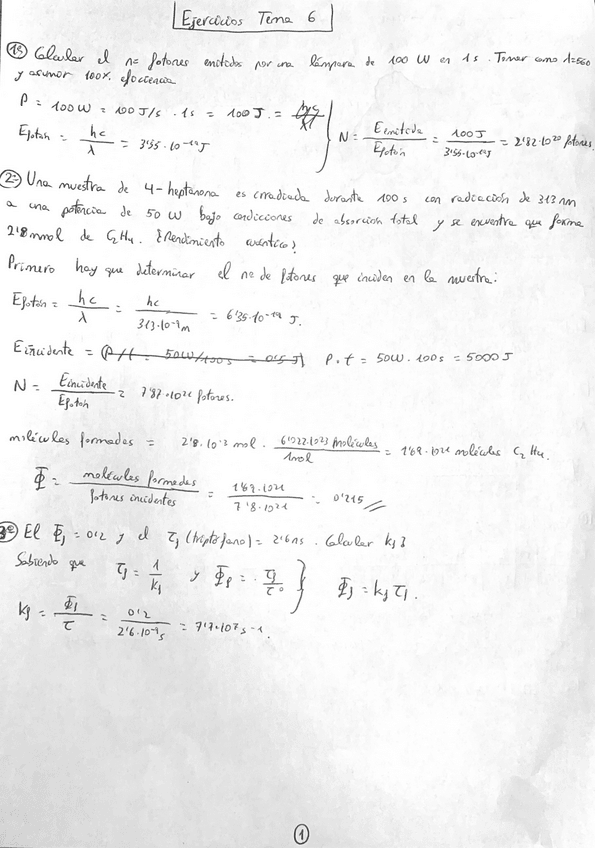 Ejercicios Tema 6
1º Calcular el nº fotones emitidos por una lámpara de 100 W en 1 s. Tomar como λ=560
y asumir 100% eficiencia
P = 100 W = 100 J/s · 1s = 100 J. = hc/λ
Efotón = hc/λ = 3'55·10⁻¹⁹ J
N = Eemitida/Efotón = 100 J/3'55·10⁻¹⁹J = 2'82·10²⁰ fotones.
2º Una muestra de 4-heptanona es irradiada durante 100 s con radiación de 313 nm
a una potencia de 50 W bajo condiciones de absorción total y se encuentra que forma
2'8 mmol de C₂H₄. ¿Rendimiento cuántico?
Primero hay que determinar el nº de fotones que inciden en la muestra:
Efotón = hc/λ = hc/313·10⁻⁹m = 6'35·10⁻¹⁹ J.
Eincidente = (P/t = 50W/100s = 0'5 J) P·t = 50W·100s = 5000 J
N = Eincidente/Efotón = 7'87·10²¹ fotones.
moléculas formadas = 2'8·10⁻³ mol · 6'022·1023 moléculas/1mol = 1'69·10²¹ moléculas C₂H₄.
Φ = moléculas formadas/fotones incidentes = 1'69·10²¹/7'8·10²¹ = 0'215
3º El Φf = 0'2 y el τf (triptófano) = 2'6 ns. Calcular kf?
Sabiendo que τf = 1/kf y Φf = τf/τ° } Φf = kf τf.
kf = Φf/τ = 0'2/2'6·10⁻⁹s = 7'7·10⁷ s⁻¹.
1